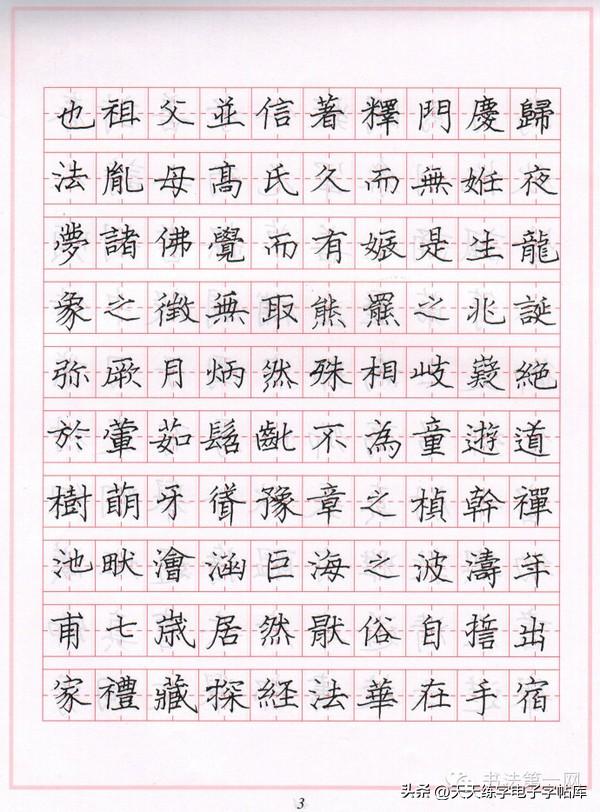 也祖父並信著釋門慶歸
法胤母高氏久而無妊夜
夢諸佛覺而有娠是生龍
象之徵無取熊羆之兆誕
弥厥月炳然殊相岐嶷絕
於葷茹髫齔不為童遊道
樹萌牙聳豫章之楨幹禪
池畎澮涵巨海之波濤年
甫七歳居然猒俗自誓出
家禮藏探経法華在手宿
3
书法第一网
头条 @天天练字电子字帖库